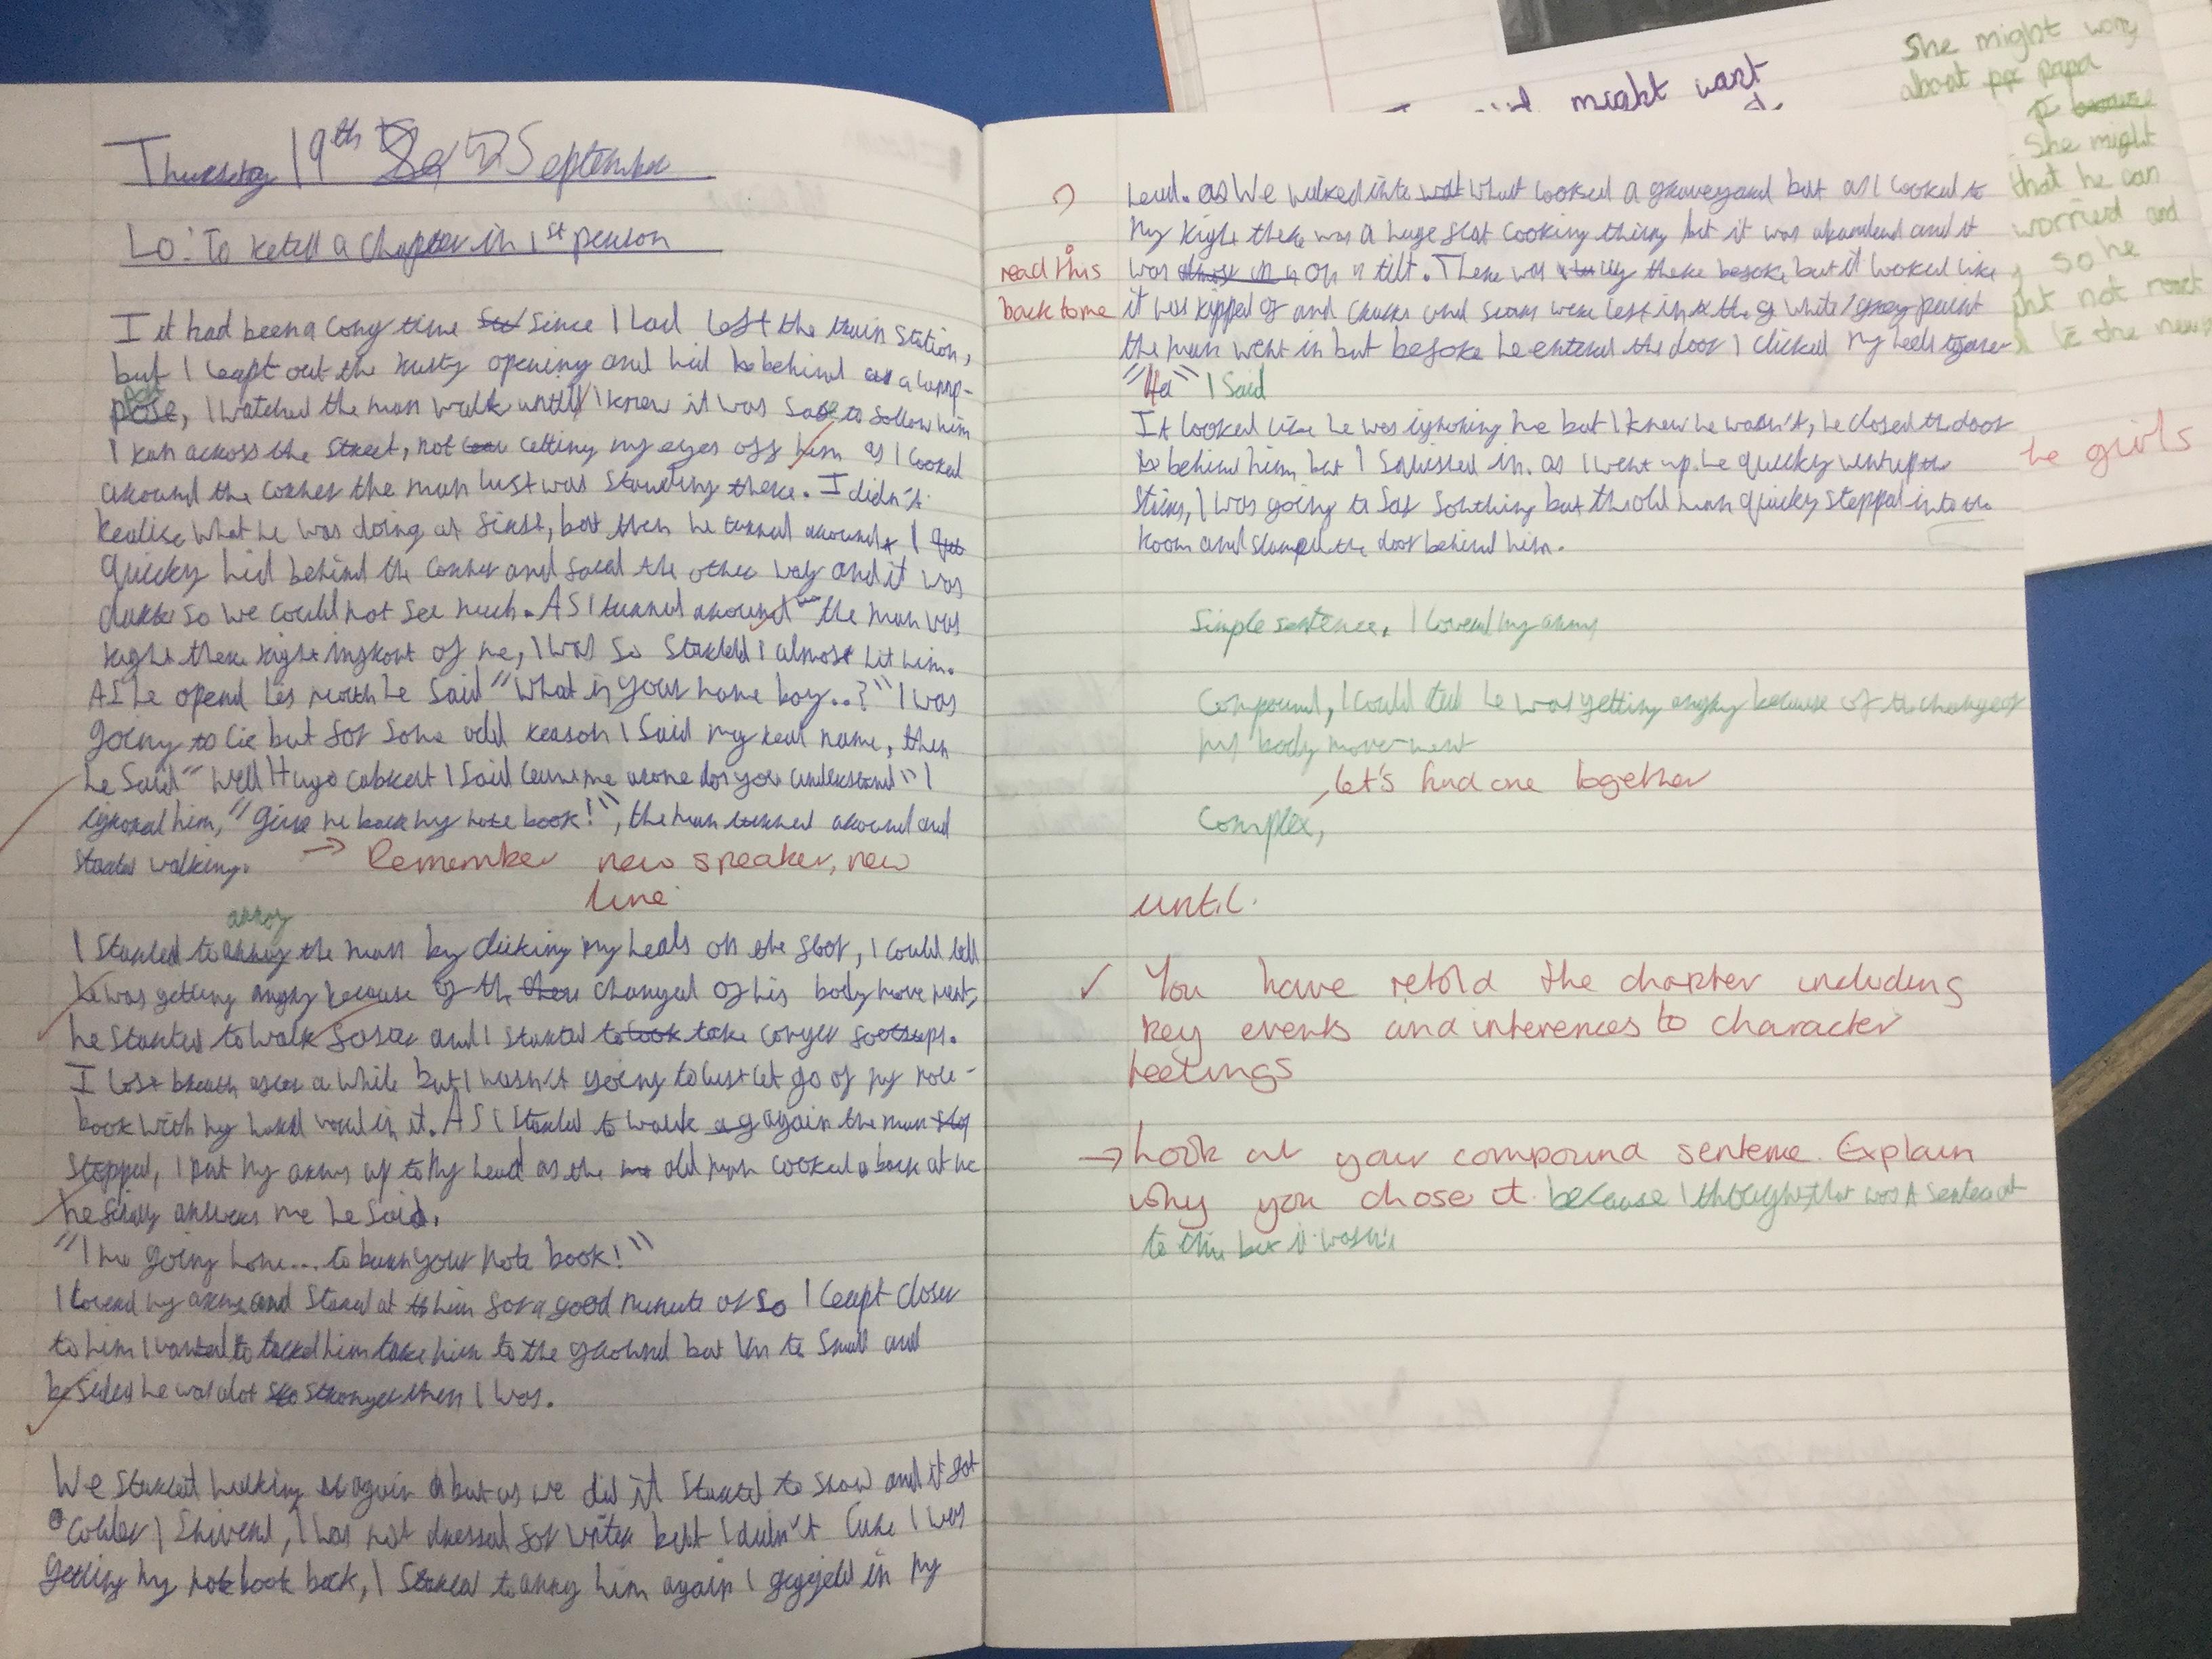 Thursday 19th September
Lo: To retell a chapter in 1st person
I it had been a long time since I had left the train station,
but I leapt out the rusty opening and hid behind a lamp-
post, I watched the man walk until I knew it was safe to follow him
I ran across the street, not letting my eyes off him as I looked
around the corner the man just was standing there. I didn't
realise what he was doing at first, but then he turned around I
quicky hid behind the corner and faced the other way and it was
dark so we could not see much. AS I turned around the man was
right there right infront of me, I was so startled I almost hit him.
AS he opend his mouth he said "What is your name boy..?" I was
going to lie but for some odd reason I said my real name, then
he said "Well Hugo cabret I said leave me alone do you understand" I
ignored him, "give me back my note book!", the man turned around and
started walking.
→ Remember new speaker, new
line.
annoy
I started to annoy the man by clicking my heals on the floor, I could tell
he was getting angry because of the changed of his body movement,
he started to walk faster and I started to take longer footsteps.
I lost breath after a while but I wasn't going to just let go of my note-
book with my hard work in it. AS I started to walk again the man
stopped, I put my arms up to my head as the old man looked back at me
he finaly answers me he said,
"I'm going home... to burn your note book!"
I lowerd my arms and stared at him for a good minute or so I leapt closer
to him I wanted to take him to the ground but I'm to small and
besides he was alot stronger then I was.
We started walking again but as we did it started to snow and it got
colder I shiverd, I was not dressed for winter but I didn't care I was
getting my note book back, I started to annoy him again I giggeld in my
head. as We walked into what looked a graveyard but as I looked to
my right there was a huge flat looking thing but it was abandend and it
read this
was on a tilt. There was there before but it looked like
back to me
it was ripped of and cracks and scars were left in the white/grey paint
the man went in but before he enterd the door I clicked my heels together
"Ha" I said
It looked like he was ignoring me but I knew he wasn't, he closed the door
behind him but I squissed in. as I went up he quicky went up the
stairs, I was going to say somthing but the old man quicky stepped into the
room and slamped the door behind him.
Simple sentence, I lowerd my arms
Compound, I could tell he was getting angry because of the change of
his body move-ment
let's find one together
Complex,
until.
✓ You have retold the chapter including
key events and inferences to character
feelings
→ Look at your compound sentence. Explain
why you chose it. because I thought that was A sentence
to this but it wasn't
might want
She might worry
about papa
She might
that he can
worried and
so he
not react
the news
he girls